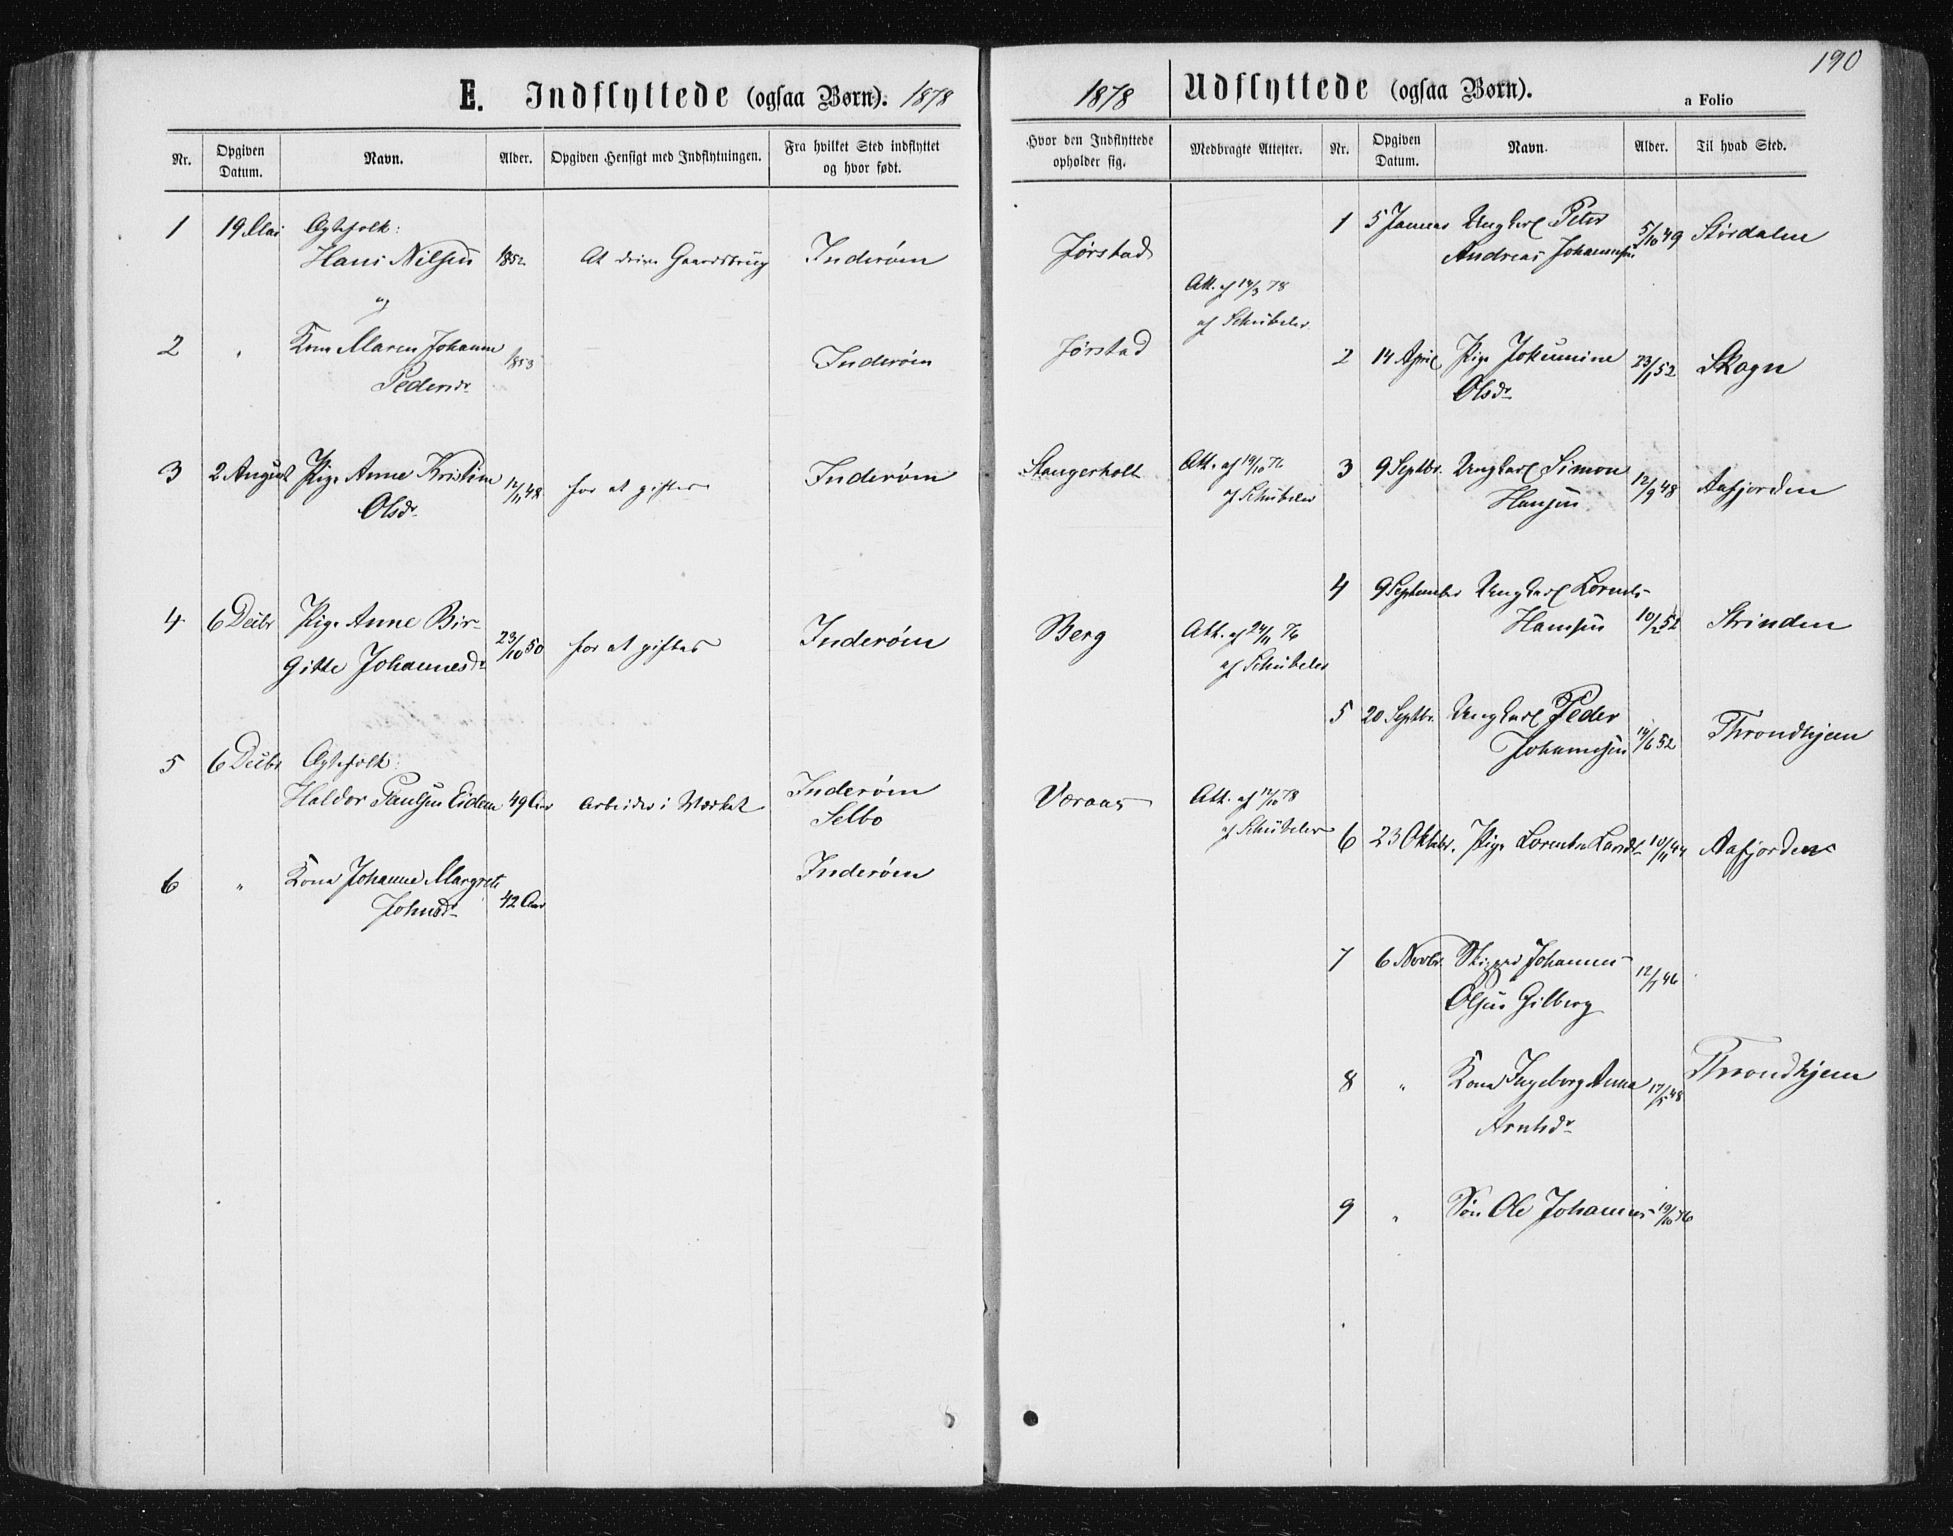 190
E. Indflyttede (ogsaa Børn). 1878
Nr. Opgiven Datum. Navn. Alder. Opgiven Hensigt med Indflytningen. Fra hvilket Sted indflyttet og hvor født.
1 19 Mai Ægtefolk:
Hans Nilsen 1852 At drive Gaardsbrug Inderøen
og
2 " Kone Maren Johanne 1853 Inderøen
Pedersdr
3 2 August Pige Anne Kristine 12/11 48 for at giftes Inderøen
Olsdr
4 6 Decbr Pige Anne Bir-
gitte Johannesdr 23/10 50 for at giftes Inderøen
5 6 Decbr Ægtefolk:
Haldor Paulsen Eidem 49 Aar Arbeider i Værket Inderøen
Selbo
6 " Kone Johanne Margrete Inderøen
Johnsdr 42 Aar
1878 Udflyttede (ogsaa Børn). a Folio
Hvor den Indflyttede opholder sig. Medbragte Attester. Nr. Opgiven Datum. Navn. Alder. Til hvad Sted.
Jørstad
Att. af 14/3 78
af Schübeler
Jørstad
Stangerholt Att. af 19/10 76
af Schübeler
Berg Att. af 24/11 76
af Schübeler
Væraas Att. af 12/10 78
af Schübeler
1 5 Januar Ungkarl Peter
Andreas Johannesen 5/10 49 Størdalen
2 14 April Pige Jokumine 23/1 52 Skogn
Olsdr
3 9 Septbr. Ungkarl Simon
Hansen 12/9 48 Aafjorden
4 9 September Ungkarl Lornts
Hansen 10/2 52 Strinden
5 20 Septbr. Ungkarl Peder
Johannesen 14/6 52 Throndhjem
6 23 Oktobr. Pige Lorentse Larsdr 10/11 44 Aafjorden
7 6 Novbr. Skipper Johannes
Olsen Gilberg 12/1 46
8 " Kone Ingeborg Anna 17/5 48 Throndhjem
Arntsdr
9 " Søn Ole Johannes 19/10 76